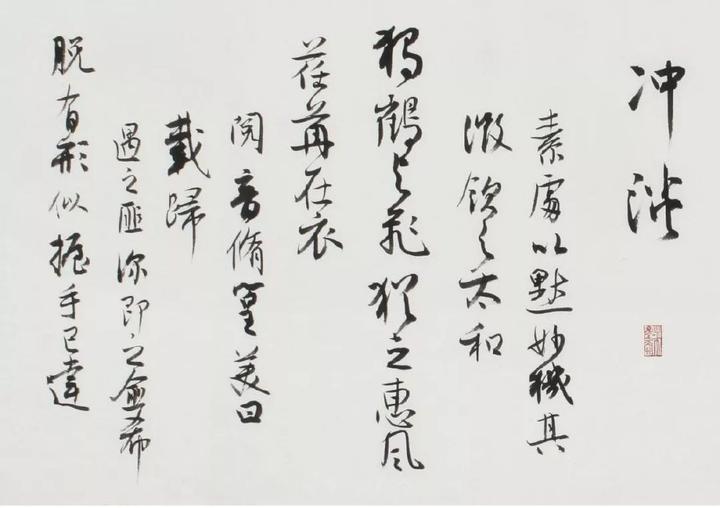 冲澹
素處以默妙機其
微飲之太和
獨鶴與飛猶之惠風
荏苒在衣
閱音脩篁美曰
載歸
遇之匪深即之愈希
脫有形似握手已違